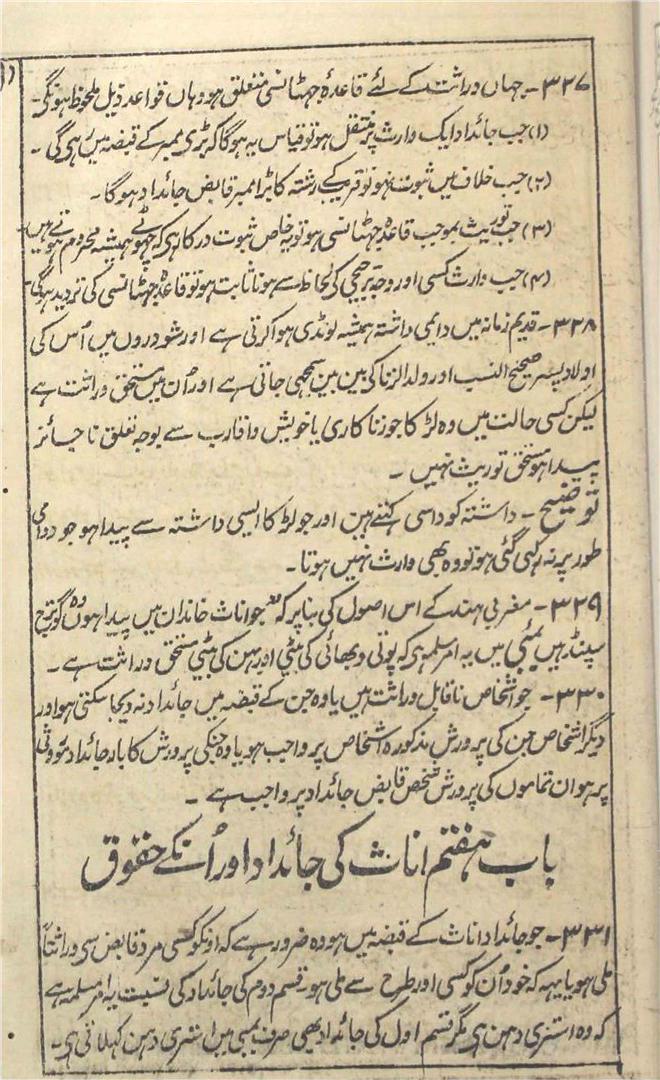 ۳۲۷۔ جہاں وراثت کے لئے قاعدۂ جھٹانسی متعلق ہو وہاں قواعد ذیل ملحوظ ہونگی۔
(۱) جب جائداد ایک وارث پر منتقل ہو تو قیاس یہ ہوگا کہ بڑی ممبر کے قبضہ میں رہی گی ۔
(۲) جب خلاف میں ثبوت نہو تو قریب کے رشتہ کا بڑا ممبر قابض جائداد ہوگا۔
(۳) جب توریث بموجب قاعدۂ جھٹانسی ہو تو یہ خاص ثبوت درکار ہی کہ چھوٹے ہمیشہ محروم ہوتے ہیں۔
(۴) جب وارث کسی اور وجہ ترجیحی کی لحاظ سے ہونا ثابت ہو تو قاعدۂ جھٹانسی کی تردید ہوگی۔
۳۲۸۔ قدیم زمانہ میں دایمی داشتہ ہمیشہ لونڈی ہوا کرتی ہے اور شودروں میں اُس کی
اولاد پسر صحیح النسب اور ولد الزنا کی بین بین سمجھی جاتی ہے اور اُن میں مستحق وراثت ہے
لیکن کسی حالت میں وہ لڑکا جو زناکاری یا خویش و اقارب سے بوجہ تعلق ناجائز
پیدا ہو مستحق توریث نہیں ۔
توضیح ۔ داشتہ کو داسی کہتے ہین اور جو لڑکا ایسی داشتہ سے پیدا ہو جو دوامی
طور پر نہ رکہی گئی ہو تو وہ بھی وارث نہیں ہوتا۔
۳۲۹۔ مغربی ہند کے اس اصول کی بنا پر کہ جو اناث خاندان میں پیدا ہوں وہ گوترج
سپنڈ ہیں بمبئی میں یہ امر مسلمہ ہی کہ پوتی و بھائی کی بیٹی اور بہن کی بیٹی مستحق وراثت ہے ۔
۳۳۰۔ جو اشخاص ناقابل وراثت ہیں یا وہ جن کے قبضہ میں جائداد نہ دیجا سکتی ہو اور
دیگر اشخاص جن کی پرورش مذکورہ اشخاص پر واجب ہو یا وہ جنکی پرورش کا بار جائداد موروثی
پر ہو ان تماموں کی پرورش شخص قابض جائداد پر واجب ہے ۔
باب ہفتم اناث کی جائداد اور اُنکے حقوق
۳۳۱۔ جو جائداد اناث کے قبضہ میں ہو وہ ضرور ہے کہ اونکو کسی مرد قابض سی وراثتاً
ملی ہو یا یہہ کہ خود اُن کو کسی اور طرح سے ملی ہو۔ قسم دوم کی جائداد کی نسبت یہ امر مسلمہ ہے
کہ وہ استری دہن ہی مگر قسم اول کی جائداد بھی صرف بمبئی میں استری دہن کہلاتی ہی۔